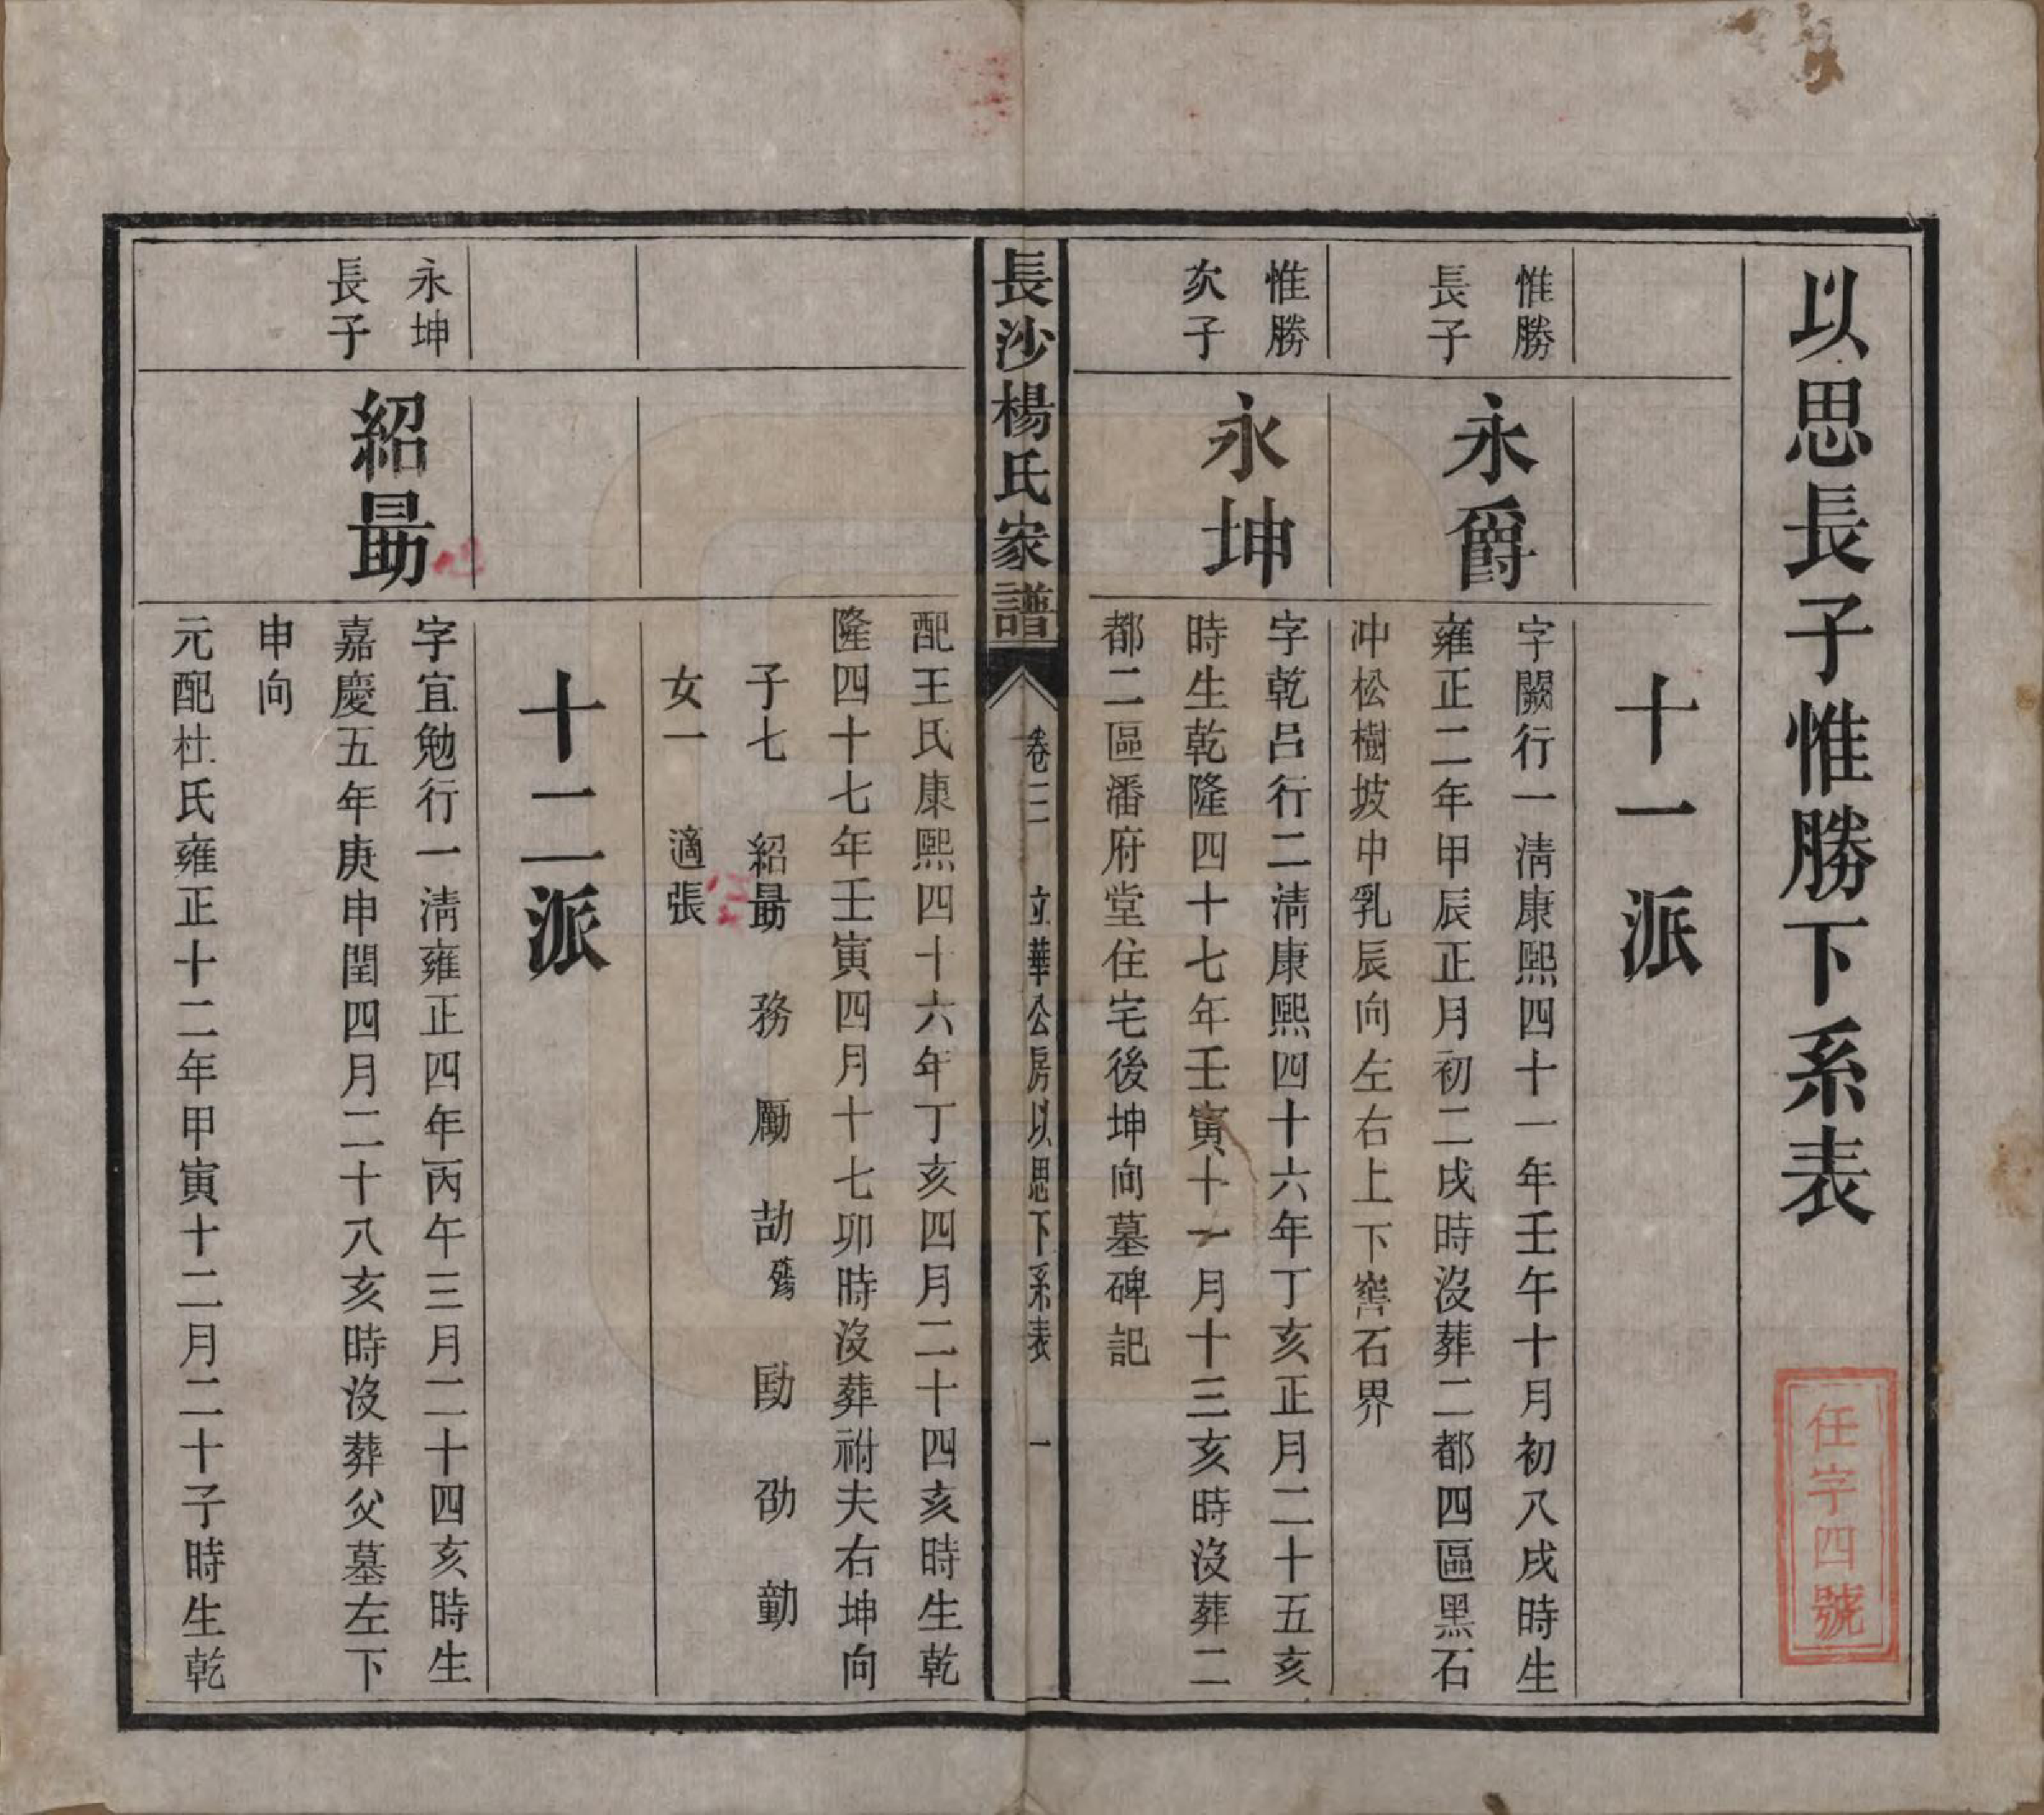 以思長子惟勝下系表
任字四號
十一派
惟勝
長子
永爵
字闕行一淸康熙四十一年壬午十月初八戌時生
雍正二年甲辰正月初二戌時沒葬二都四區黑石
冲松樹坡中乳辰向左右上下窖石界
惟勝
次子
永坤
字乾呂行二淸康熙四十六年丁亥正月二十五亥
時生乾隆四十七年壬寅十一月十三亥時沒葬二
都二區潘府堂住宅後坤向墓碑記
長沙楊氏家譜
卷三
立華公房以思下系表
一
配王氏康熙四十六年丁亥四月二十四亥時生乾
隆四十七年壬寅四月十七卯時沒葬祔夫右坤向
子七 紹勗 務 勵 劼殤 劻 劭 勤
女一 適張
十二派
永坤
長子
紹勗
字宜勉行一淸雍正四年丙午三月二十四亥時生
嘉慶五年庚申閏四月二十八亥時沒葬父墓左下
申向
元配杜氏雍正十二年甲寅十二月二十子時生乾